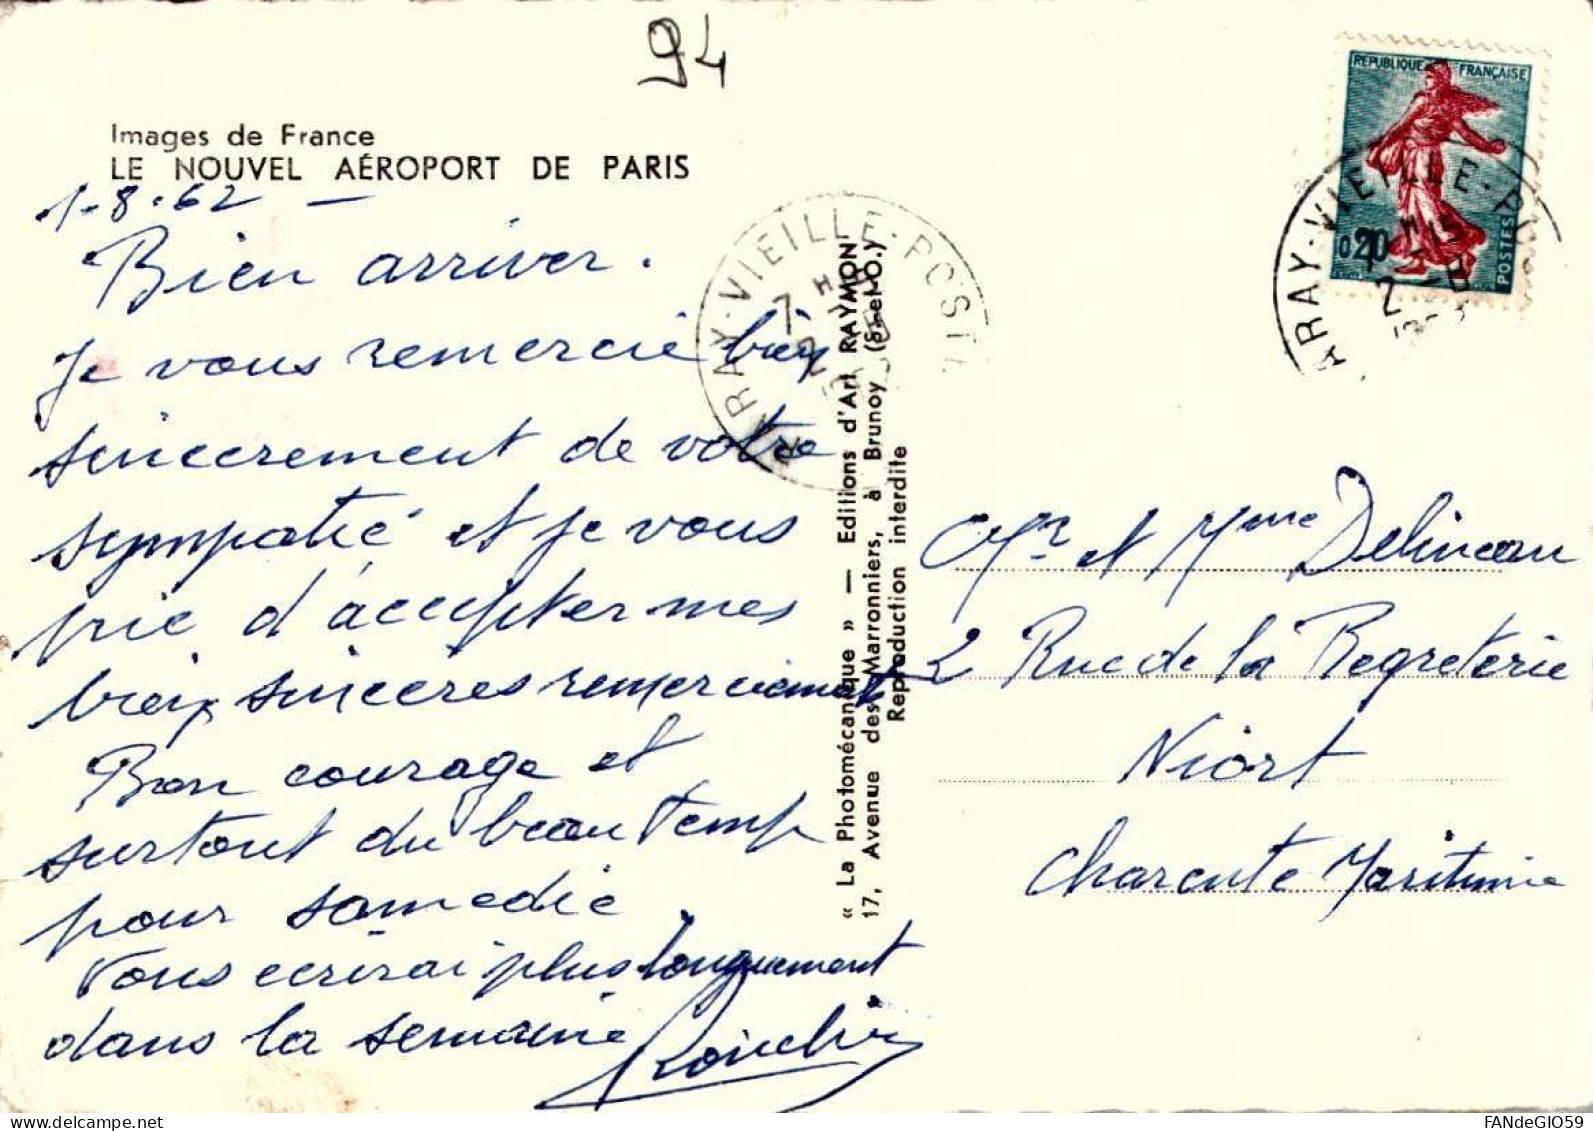 94
Images de France
LE NOUVEL AÉROPORT DE PARIS
1-8-62 —
Bien arriver.
Je vous remercie bien
sincerement de votre
sympatié et je vous
prie d'accepter mes
bien sincères remerciements
Bon courage et
surtout du beau temp
pour samedie.
Vous ecrirai plus longuement
dans la semaine
RAY-VIEILLE-POSTE
« La Photomécanique » — Editions d'Art RAYMON
17, Avenue des Marronniers, à Brunoy (S.-et-O.)
Reproduction interdite
REPUBLIQUE FRANÇAISE
0,20
POSTES
RAY-VIEILLE-PO
Mr et Mme Delineau
2 Rue de la Regreterie
Niort
Charente Maritime
FANdeGIO59